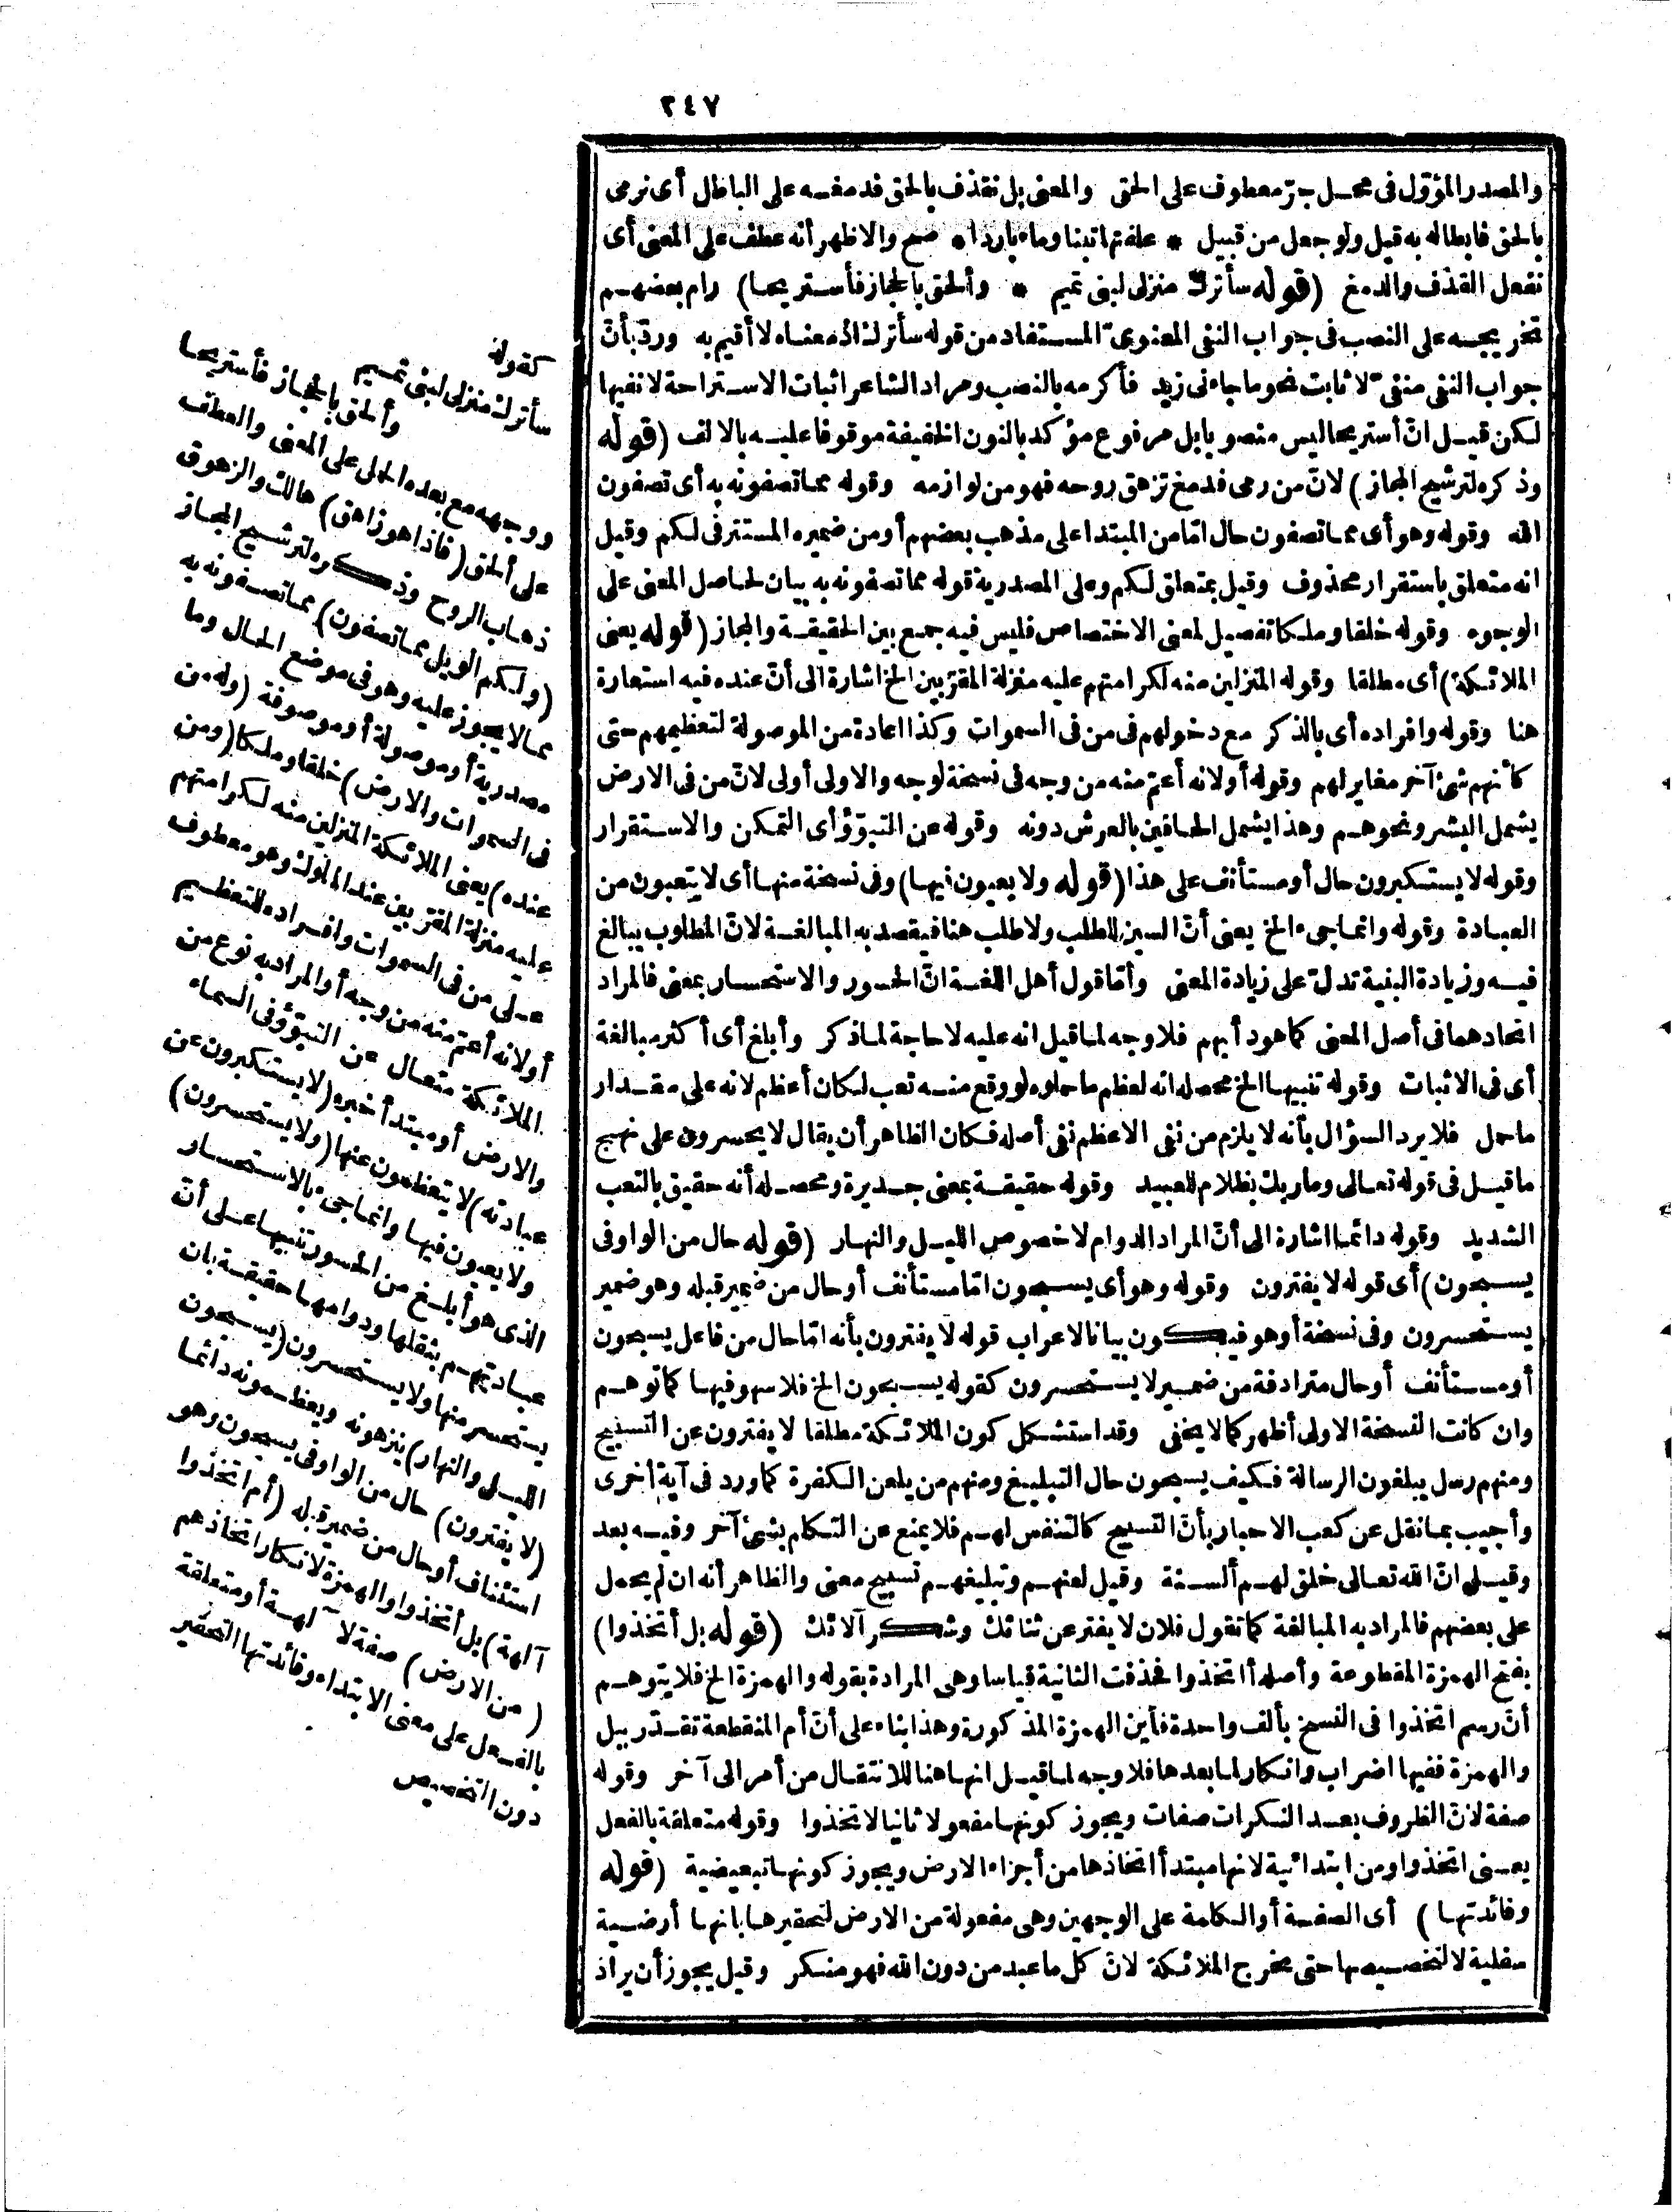 ٢٤٧
والمصدر المؤوّل فى محل جرّ معطوف على الحق والمعنى بل نقذف بالحق فدمغه على الباطل أى نرمى
بالحق فابطاله به قيل ولو جعل من قبيل * علفتها تبنا وماء باردا * صح والاظهر أنه عطف على المعنى أى
نفعل القذف والدمغ (قوله سأترك منزلى لبنى تميم * وألحق بالحجاز فأستريحا) رام بعضهم
تخريجه على النصب فى جواب النفى المعنوىّ المستفاد من قوله سأترك اذ معناه لا أقيم به وردّ بأنّ
جواب النفى منفىّ لا ثابت نحو ما جاءنى زيد فأكرمه بالنصب ومراد الشاعر اثبات الاستراحة لا نفيها
لكن قيل انّ أستريحا ليس منصوبا بل مرفوع مؤكد بالنون الخفيفة موقوفا عليه بالالف (قوله
وذكره لترشيح المجاز) لانّ من رمى فدمغ تزهق روحه فهو من لوازمه وقوله مما تصفونه به أى تصفون
الله وقوله وهو أى مما تصفون حال امّا من المبتدا على مذهب بعضهم أو من ضميره المستتر فى لكم وقيل
انه متعلق باستقرار محذوف وقيل بمتعلق لكم وعلى المصدرية قوله مما تصفونه به بيان لحاصل المعنى على
الوجوه وقوله خلقا وملكا تفصيل لمعنى الاختصاص فليس فيه جمع بين الحقيقة والمجاز (قوله يعنى
الملائكة) أى مطلقا وقوله المنزلين منه لكرامتهم عليه منزلة المقرّبين الخ اشارة الى أنّ عنده فيه استعارة
هنا وقوله وافراده أى بالذكر مع دخولهم فى من فى السموات وكذا اعادة من الموصولة لتعظيمهم حتى
كأنهم شئ آخر مغاير لهم وقوله أو لانه أعمّ منه من وجه فى نسخة لوجه والاولى أولى لانّ من فى الارض
يشمل البشر ونحوهم وهذا يشمل الحافين بالعرش دونه وقوله عن التبوّؤ أى التمكن والاستقرار
وقوله لا يستكبرون حال أو مستأنف على هذا (قوله ولا يعيون فيها) وفى نسخة منها أى لا يتعبون من
العبادة وقوله وانما جىء الخ يعنى أنّ السين للطلب ولا طلب هنا فيقصد به المبالغة لانّ المطلوب يبالغ
فيه وزيادة البنية تدلّ على زيادة المعنى وأمّا قول أهل اللغة انّ الحسور والاستحسار بمعنى فالمراد
اتحادهما فى أصل المعنى كما هو دأبهم فلا وجه لما قيل انه عليه لا حاجة لما ذكر وأبلغ أى أكثر مبالغة
أى فى الاثبات وقوله تنبيها الخ محصله انه لعظم ما حملوه لو وقع منه تعب لكان أعظم لانه على مقدار
ما حمل فلا يرد السؤال بأنه لا يلزم من نفى الاعظم نفى أصله فكان الظاهر أن يقال لا يحسرون على نهج
ما قيل فى قوله تعالى وما ربك بظلام للعبيد وقوله حقيقة بمعنى جديرة ومحصله أنه حقيق بالتعب
الشديد وقوله دائما اشارة الى أنّ المراد الدوام لا خصوص الليل والنهار (قوله حال من الواو فى
يسبحون) أى قوله لا يفترون وقوله وهو أى يسبحون امّا مستأنف أو حال من ضمير قبله وهو ضمير
يستحسرون وفى نسخة أو هو فيكون بيانا لاعراب قوله لا يفترون بأنه امّا حال من فاعل يسبحون
أو مستأنف أو حال مترادفة من ضمير لا يستحسرون كقوله يسبحون الخ فلا سهو فيها كما توهم
وان كانت النسخة الاولى أظهر كما لا يخفى وقد استشكل كون الملائكة مطلقا لا يفترون عن التسبيح
ومنهم رسل يبلغون الرسالة فكيف يسبحون حال التبليغ ومنهم من يلعن الكفرة كما ورد فى آية أخرى
وأجيب بما نقل عن كعب الاحبار بأنّ التسبيح كالتنفس لهم فلا يمنع عن التكلم بشئ آخر وفيه بعد
وقيل انّ الله تعالى خلق لهم ألسنة وقيل لعنهم وتبليغهم تسبيح معنى والظاهر أنه ان لم يحمل
على بعضهم فالمراد به المبالغة كما تقول فلان لا يفتر عن ثنائك وشكر آلائك (قوله بل أتخذوا)
بفتح الهمزة المقطوعة وأصله أاتخذوا فحذفت الثانية قياسا وهى المرادة بقوله والهمزة الخ فلا يتوهم
أنّ رسم اتخذوا فى النسخ بألف واحدة فأين الهمزة المذكورة وهذا بناء على أنّ أم المنقطعة تقدّر ببل
والهمزة ففيها اضراب وانكار لما بعدها فلا وجه لما قيل انها هنا للانتقال من أمر الى آخر وقوله
صفة لانّ الظروف بعد النكرات صفات ويجوز كونها مفعولا ثانيا لاتخذوا وقوله متعلقة بالفعل
يعنى اتخذوا ومن ابتدائية لانها مبتدأ اتخاذها من أجزاء الارض ويجوز كونها تبعيضية (قوله
وفائدتها) أى الصفة أو الكلمة على الوجهين وهى مفعولة من الارض لتحقيرها بانها أرضية
سفلية لا لتخصيصها حتى مخرج الملائكة لانّ كل ما عبد من دون الله فهو منكر وقيل يجوز أن يراد
كقوله
سأترك منزلى لبنى تميم
وألحق بالحجاز فأستريحا
ووجهه مع بعده الحمل على المعنى والعطف
على الحق (فاذا هو زاهق) هالك والزهوق
ذهاب الروح وذكره لترشيح المجاز
(ولكم الويل مما تصفون) مما تصفونه به
مما لا يجوز عليه وهو فى موضع الحال وما
مصدرية أو موصولة أو موصوفة (وله من
فى السموات والارض) خلقا وملكا (ومن
عنده) يعنى الملائكة المنزلين منه لكرامتهم
عليه منزلة المقرّبين عند الملوك وهو معطوف
على من فى السموات وافراده للتعظيم
أو لانه أعمّ منه من وجه أو المراد به نوع من
الملائكة متعال عن التبوّؤ فى السماء
والارض أو مبتدأ خبره (لا يستكبرون عن
عبادته) لا يتعظمون عنها (ولا يستحسرون)
ولا يعيون فيها وانما جىء بالاستحسار
الذى هو أبلغ من الحسور تنبيها على أنّ
عبادتهم بثقلها ودوامها حقيقة بان
يستحسر منها ولا يستحسرون (يسبحون
الليل والنهار) ينزهونه ويعظمونه دائما
(لا يفترون) حال من الواو فى يسبحون وهو
استئناف أو حال من ضمير قبله (أم اتخذوا
آلهة) بل أتخذوا والهمزة لانكار اتخاذهم
(من الارض) صفة لآلهة أو متعلقة
بالفعل على معنى الابتداء وفائدتها التحقير
دون التخصيص